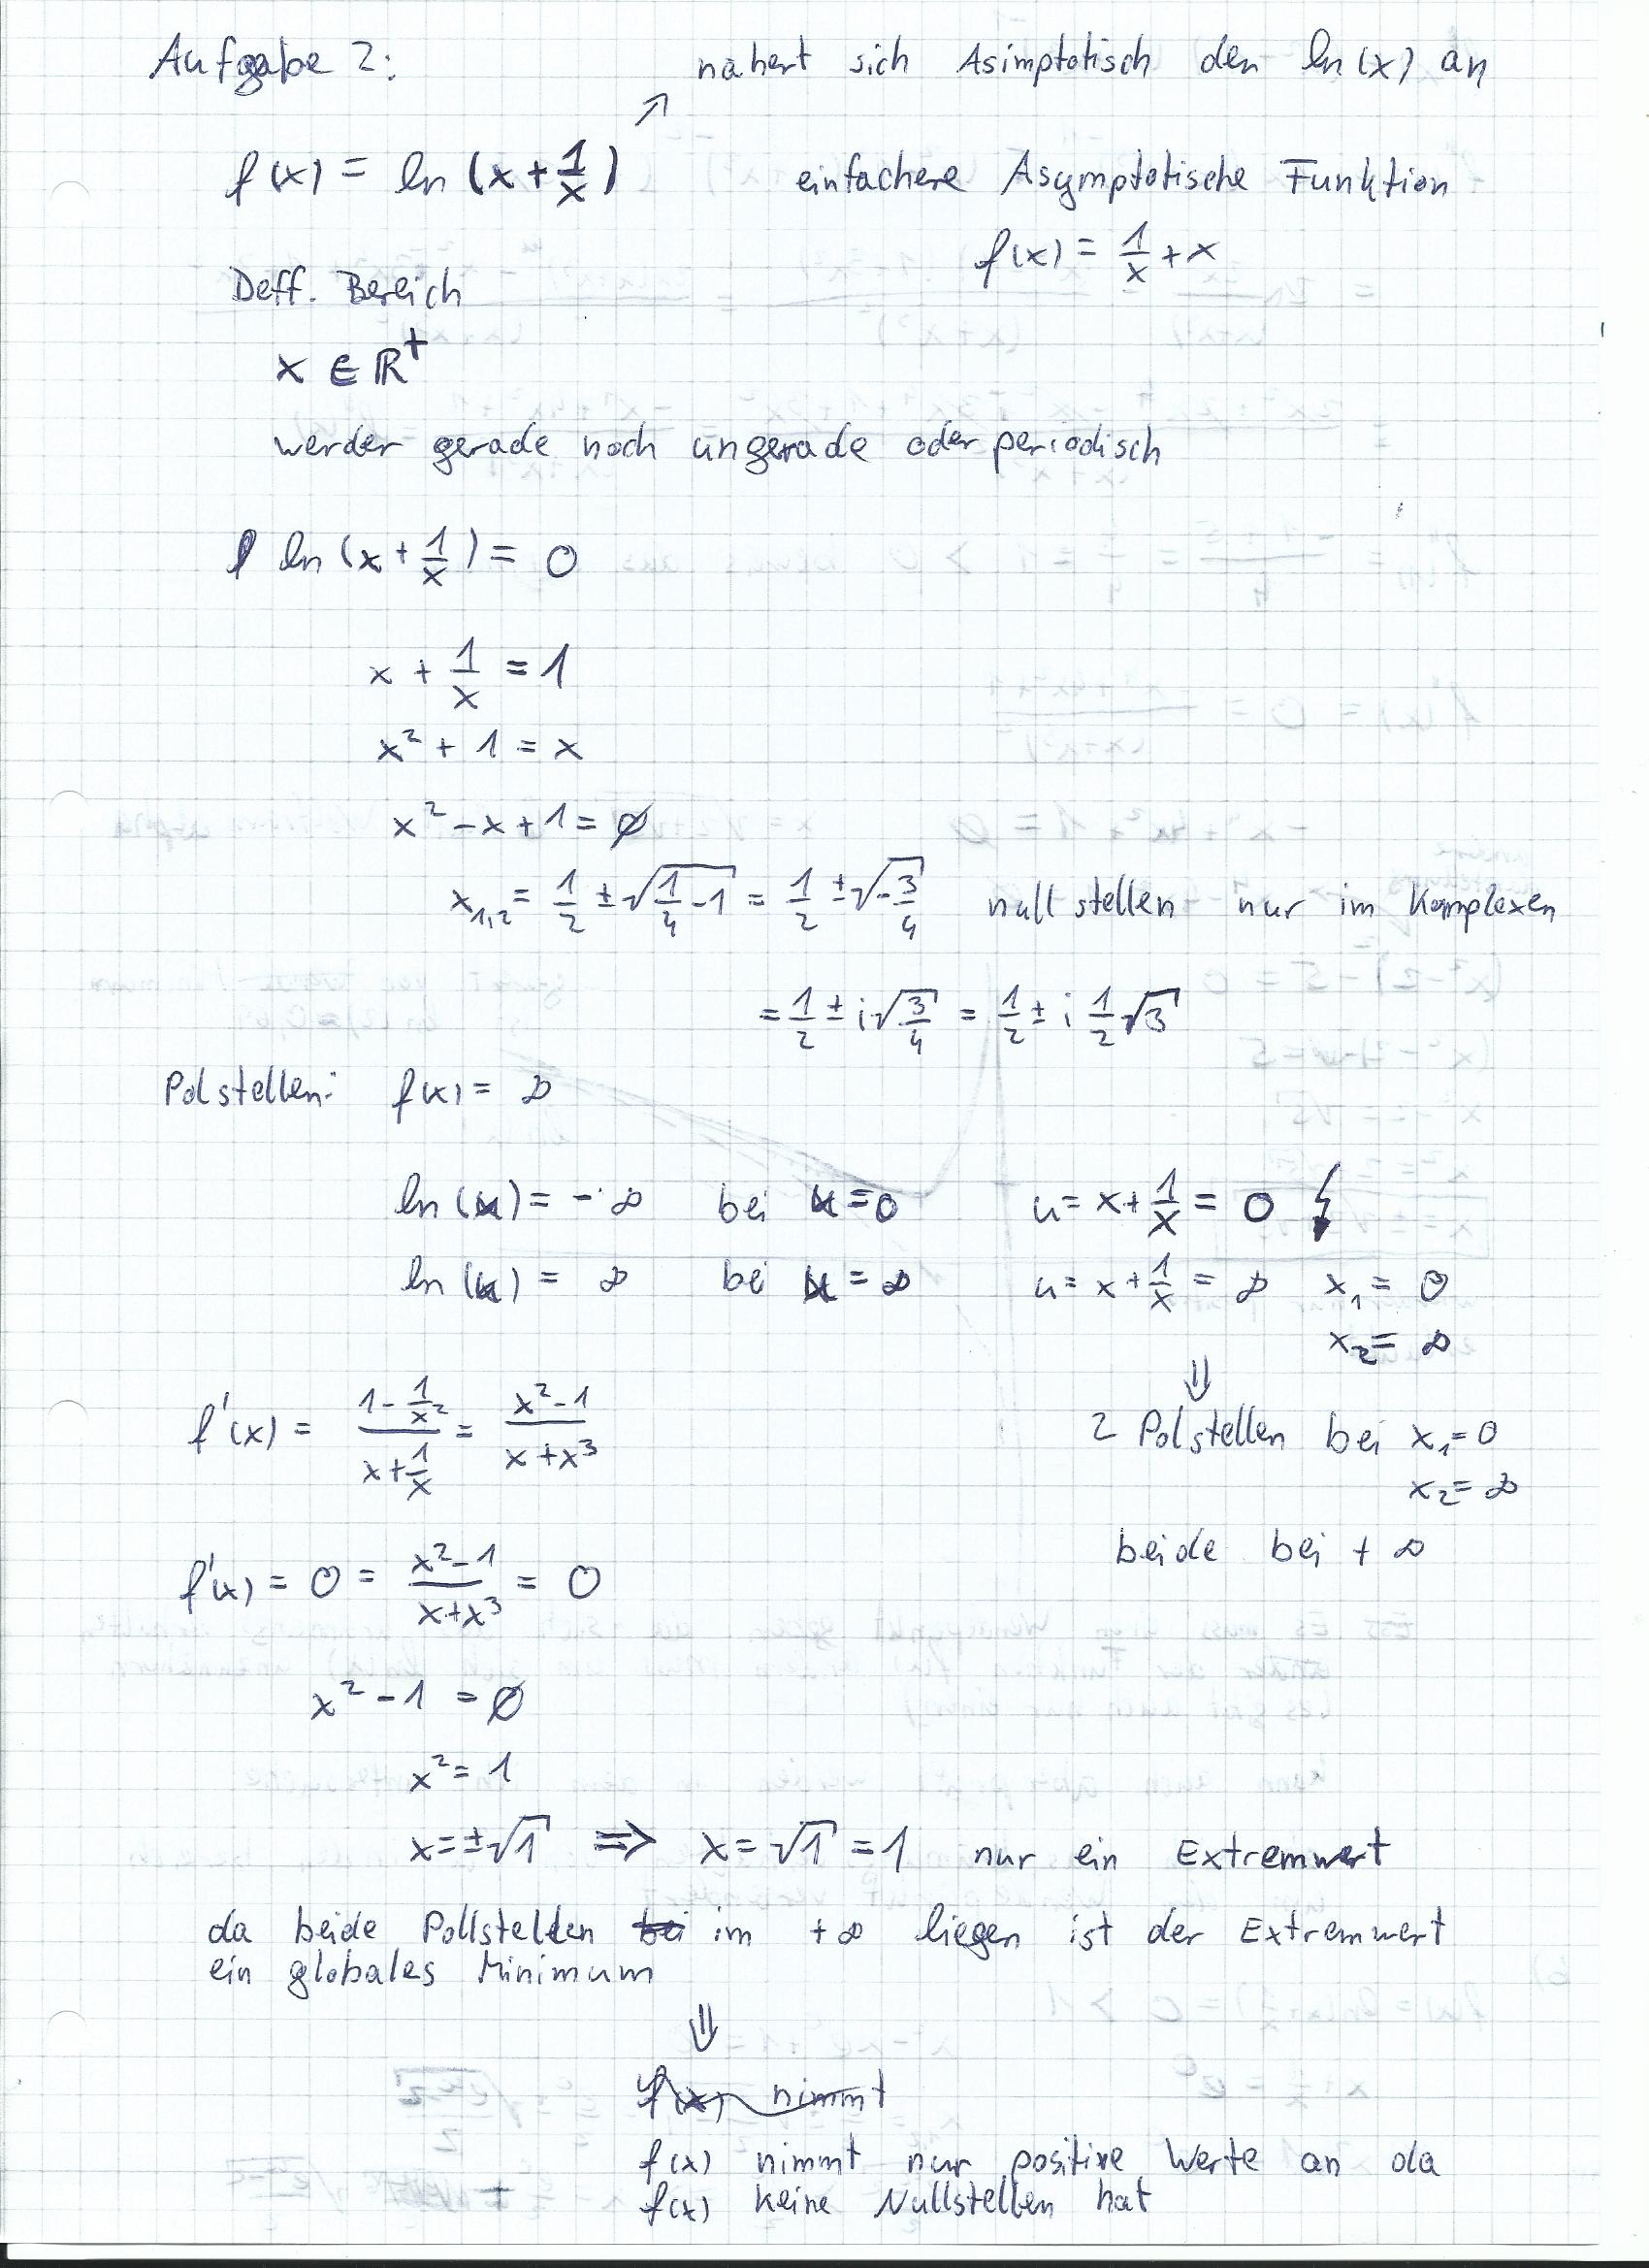 Aufgabe 2:
nähert sich Asimptotisch den ln(x) an
↗
f(x) = ln (x + 1/x)
einfachere Asymptotische Funktion
f(x) = 1/x + x
Deff. Bereich
x ∈ ℝ⁺
werder gerade noch ungerade oder periodisch
ln (x + 1/x) = 0
x + 1/x = 1
x² + 1 = x
x² - x + 1 = 0
x₁,₂ = 1/2 ± √(1/4 - 1) = 1/2 ± √(-3/4) nullstellen nur im Komplexen
= 1/2 ± i√(3/4) = 1/2 ± i 1/2 √3
Polstellen: f(x) = ∞
ln (u) = -∞ bei u = 0 u = x + 1/x = 0 ↯
ln (u) = ∞ bei u = ∞ u = x + 1/x = ∞ x₁ = 0
x₂ = ∞
⇓
f'(x) = (1 - 1/x²)/(x + 1/x) = (x² - 1)/(x + x³)
2 Polstellen bei x₁ = 0
x₂ = ∞
beide bei + ∞
f'(x) = 0 = (x² - 1)/(x + x³) = 0
x² - 1 = 0
x² = 1
x = ±√1 ⇒ x = √1 = 1 nur ein Extremwert
da beide Pollstellen bei im +∞ liegen ist der Extremwert
ein globales Minimum
⇓
f(x) nimmt
f(x) nimmt nur positive Werte an da
f(x) keine Nullstellen hat